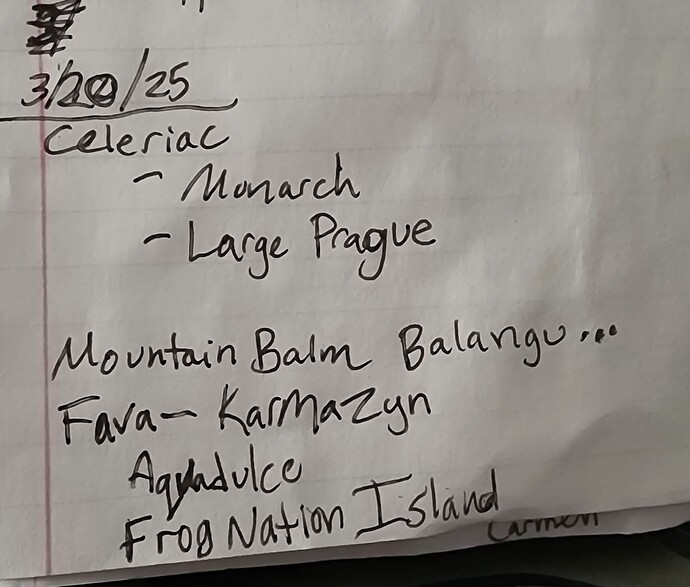 3/20/25
Celeriac
- Monarch
- Large Prague
Mountain Balm Balangu...
Fava - Karmazyn
Aquadulce
Frog Nation Island
Carmen